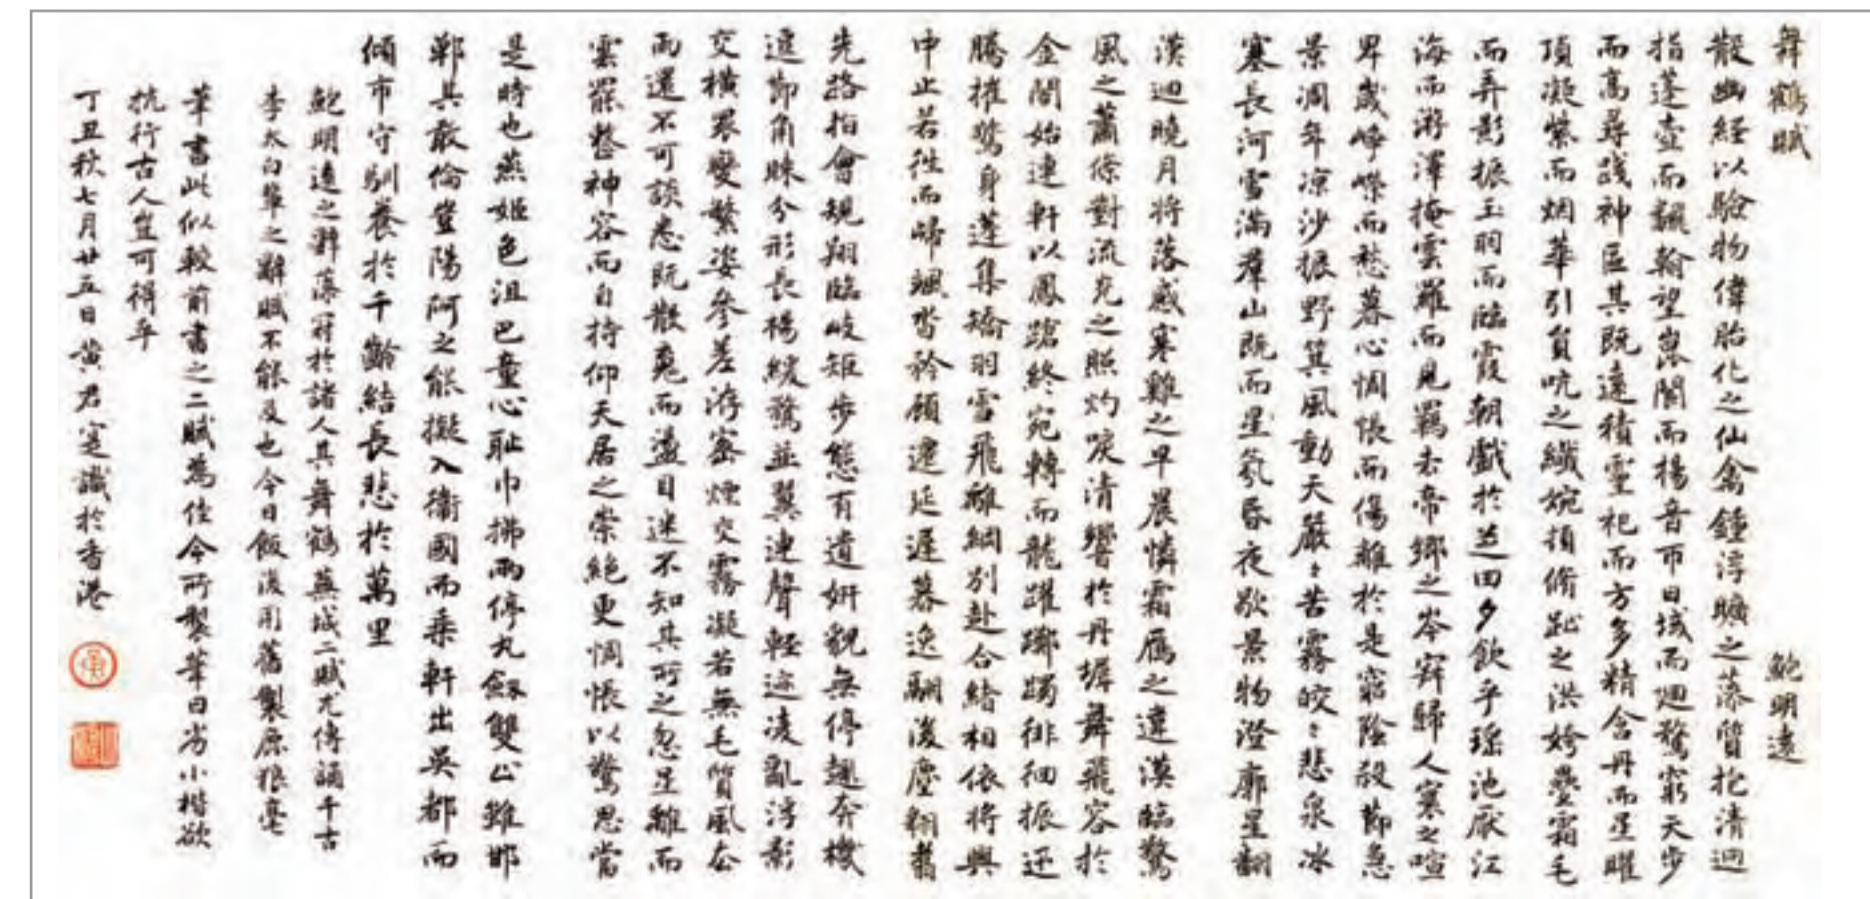 舞鶴賦 鮑明遠
散幽経以驗物偉胎化之仙禽鍾浮曠之藻質抱清迥
指蓬壺而翻翰望崑閬而揚音帀日域而廻騖窮天步
而高尋踐神區其既遠積靈祀而方多精含丹而星曜
頂凝紫而烟華引員吭之纖婉頓脩趾之洪姱疊霜毛
而弄影振玉羽而臨霞朝戲於芝田夕飲乎瑤池厭江
海而游澤掩雲羅而見羈去帝鄉之岑寂歸人寰之喧
卑歲崢嶸而愁暮心惆悵而傷離於是窮陰殺節急
景凋年涼沙振野箕風動天嚴〻苦霧皎〻悲泉冰
塞長河雪滿羣山既而星氛昏夜歇景物澄廓星翻
漢迴曉月將落感寒雞之早晨憐霜雁之違漠臨驚
風之蕭條對流光之照灼唳清響於丹墀舞飛容於
金閣始連軒以鳳蹌終宛轉而龍躍躑躅徘徊振迅
騰摧驚身蓬集矯羽雪飛離綱別赴合緒相依將興
中止若往而歸颯沓矜顧遷延遲暮逸翮後塵翱翥
先路指會規翔臨岐矩步態有遺妍貌無停趣奔機
逗節角睞分形長揚緩騖並翼連聲輕迹凌亂浮影
交橫衆變繁姿參差洊密煙交霧凝若無毛質風去
雨還不可談悉既散魂而盪目迷不知其所之忽星離而
雲罷整神容而自持仰天居之崇絕更惆悵以驚思當
是時也燕姬色沮巴童心恥巾拂兩停丸劍雙止雖邯
鄲其敢倫豈陽阿之能擬入衛國而乘軒出吳都而
傾市守馴養於千齡結長悲於萬里
鮑明遠之辭藻冠於諸人其舞鶴蕪城二賦尤傳誦千古
李太白輩之辭賦不能及也今日飯後用舊製鹿狼毫
筆書此似較前書之二賦為佳今所製筆曰劣小楷欲
抗行古人豈可得乎
丁丑秋七月廿五日黃君寔識於香港